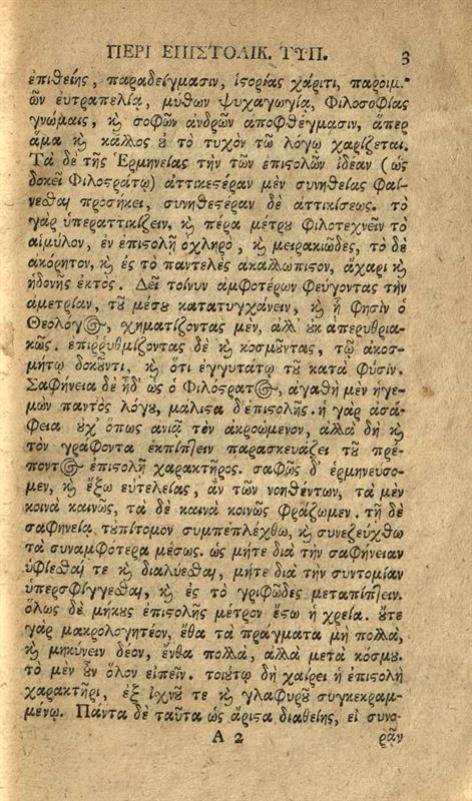 ΠΕΡΙ ΕΠΙΣΤΟΛΙΚ. ΤΥΠ. 3
ἐπιθείης, παραδείγμασιν, ἱστορίας χάριτι, παροιμ-
ῶν εὐτραπελίᾳ, μύθων ψυχαγωγίᾳ, Φιλοσοφίας
γνώμαις, ϗ σοφῶν ἀνδρῶν ἀποφθέγμασιν, ἅπερ
ἅμα ϗ κάλλος ȣ τὸ τυχὸν τῷ λόγῳ χαρίζεται.
Τὰ δὲ τῆς Ἑρμηνείας τὴν τῶν ἐπιστολῶν ἰδέαν (ὡς
δοκεῖ Φιλοστράτῳ) ἀττικεστέραν μὲν συνηθείας φαί-
νεσθαι προσήκει, συνηθεστέραν δὲ ἀττικίσεως. τὸ
γὰρ ὑπεραττικίζειν, ϗ πέρα μέτρȣ φιλοτεχνεῖν τὸ
αἱμύλον, ἐν ἐπιστολῇ ὀχληρὸ, ϗ μειρακιῶδες, τὸ δὲ
ἀκόρητον, ϗ ἐς τὸ παντελὲς ἀκαλλώπιστον, ἄχαρι ϗ
ἡδονῆς ἐκτός. Δεῖ τοίνυν ἀμφοτέρων φεύγοντας τὴν
ἀμετρίαν, τȣ͂ μέσȣ κατατυγχάνειν, ϗ ᾗ φησὶν ὁ
Θεολόγος, σχηματίζοντας μὲν, ἀλλ' ȣκ ἀπερυθρια-
κῶς. ἐπιῤῥυθμίζοντας δὲ ϗ κοσμȣ͂ντας, τῷ ἀκοσ-
μήτῳ δοκȣ͂ντι, ϗ ὅτι ἐγγυτάτω τȣ͂ κατὰ φύσιν.
Σαφήνεια δὲ ἠδ' ὡς ὁ Φιλόστρατος, ἀγαθὴ μὲν ἡγε-
μὼν παντὸς λόγȣ, μάλιστα δ' ἐπιστολῆς. ἡ γὰρ ἀσά-
φεια ȣχ' ὅπως ἀνιᾷ τὸν ἀκροώμενον, ἀλλὰ δὴ ϗ
τὸν γράφοντα ἐκπίπτειν παρασκευάζει τȣ͂ πρέ-
ποντος ἐπιστολῇ χαρακτῆρος. σαφῶς δ' ἑρμηνεύσο-
μεν, ϗ ἔξω εὐτελείας, ἂν τῶν νοηθέντων, τὰ μὲν
κοινὰ καινῶς, τὰ δὲ καινὰ κοινῶς φράζωμεν. τῇ δὲ
σαφηνείᾳ τὸ σύντομον συμπεπλέχθω, ϗ συνεζεύχθω
τὰ συναμφότερα μέσως. ὡς μήτε διὰ τὴν σαφήνειαν
ὑφίεσθαι τε ϗ διαλύεσθαι, μήτε διὰ τὴν συντομίαν
ὑπερσφίγγεσθαι, ϗ ἐς τὸ γριφῶδες μεταπίπτειν.
ὅλως δὲ μήκȣς ἐπιστολῆς μέτρον ἔστω ἡ χρεία. ȣ̓́τε
γὰρ μακρολογητέον, ἔνθα τὰ πράγματα μὴ πολλὰ,
ϗ μηκύνειν δέον, ἔνθα πολλὰ, ἀλλὰ μετὰ κόσμȣ.
τὸ μὲν ȣ̓͂ν ὅλον εἰπεῖν. τοιȣ́τῳ δὴ χαίρει ἡ ἐπιστολὴ
χαρακτῆρι, ἐξ ἰχνȣ͂ τε ϗ γλαφυρȣ͂ συγκεκραμ-
μένῳ. Πάντα δὲ ταῦτα ὡς ἄριστα διαθείης, εἰ συνο-
Α 2 ρᾶν